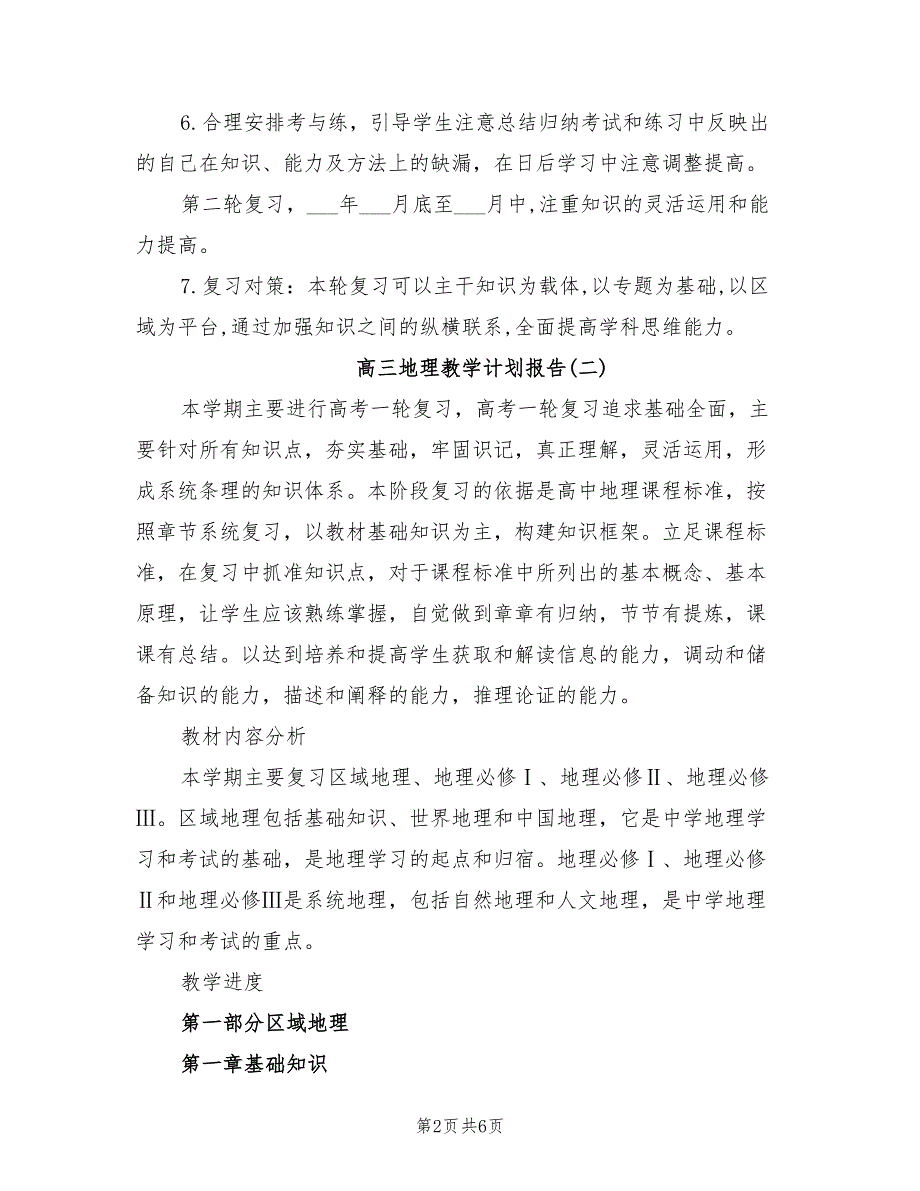 6. 合理安排考与练，引导学生注意总结归纳考试和练习中反映出
的自己在知识、能力及方法上的缺漏，在日后学习中注意调整提高。
第二轮复习，___年___月底至___月中,注重知识的灵活运用和能
力提高。
7. 复习对策：本轮复习可以主干知识为载体,以专题为基础,以区
域为平台,通过加强知识之间的纵横联系,全面提高学科思维能力。
高三地理教学计划报告(二)
本学期主要进行高考一轮复习，高考一轮复习追求基础全面，主
要针对所有知识点，夯实基础，牢固识记，真正理解，灵活运用，形
成系统条理的知识体系。本阶段复习的依据是高中地理课程标准，按
照章节系统复习，以教材基础知识为主，构建知识框架。立足课程标
准，在复习中抓准知识点，对于课程标准中所列出的基本概念、基本
原理，让学生应该熟练掌握，自觉做到章章有归纳，节节有提炼，课
课有总结。以达到培养和提高学生获取和解读信息的能力，调动和储
备知识的能力，描述和阐释的能力，推理论证的能力。
教材内容分析
本学期主要复习区域地理、地理必修Ⅰ、地理必修Ⅱ、地理必修
Ⅲ。区域地理包括基础知识、世界地理和中国地理，它是中学地理学
习和考试的基础，是地理学习的起点和归宿。地理必修Ⅰ、地理必修
Ⅱ和地理必修Ⅲ是系统地理，包括自然地理和人文地理，是中学地理
学习和考试的重点。
教学进度
第一部分区域地理
第一章基础知识
第2页共6页